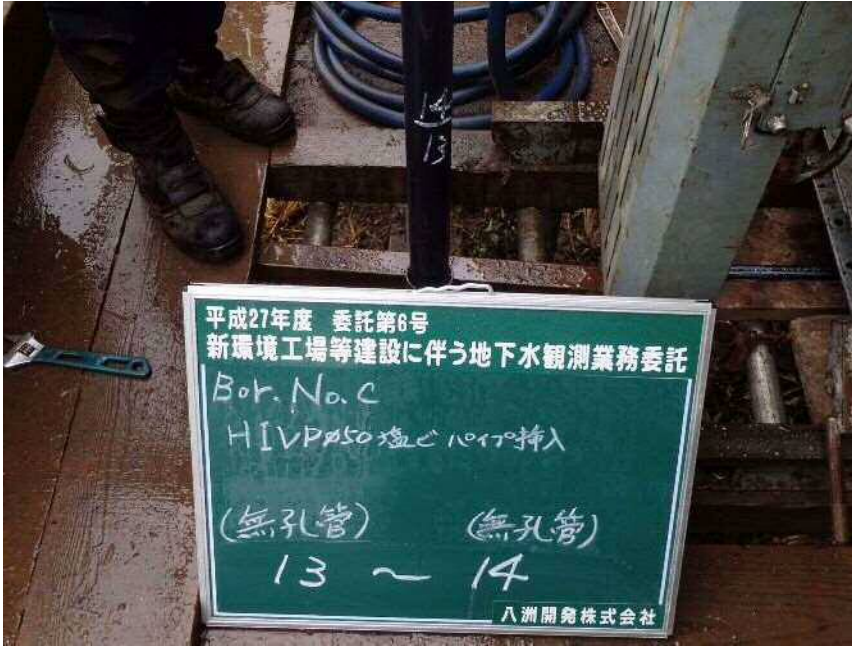 14
13
平成27年度 委託第6号
新環境工場等建設に伴う地下水観測業務委託
Bor.No.C
HIVPφ50塩ビパイプ挿入
(無孔管) (無孔管)
13 ~ 14
八洲開発株式会社